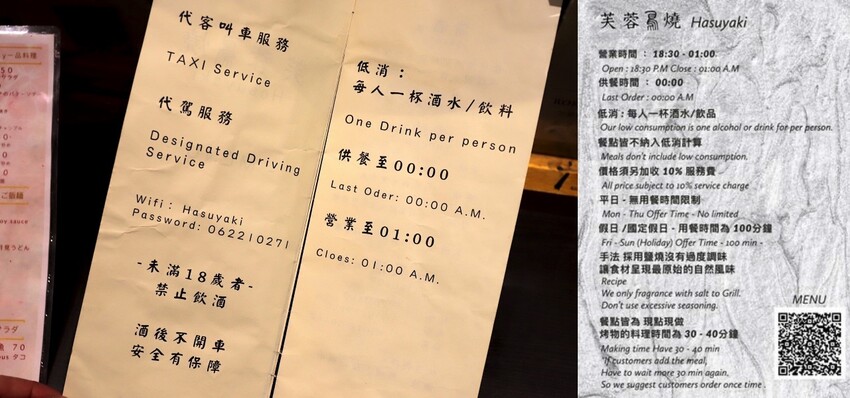 50
ご飯麺
月見うどん
サラダ
70
代客叫車服務
TAXI Service
代駕服務
Designated Driving
Service
Wifi: Hasuyaki
Password: 062210271
-未滿18歲者-
禁止飲酒
酒後不開車
安全有保障
低消：
每人一杯酒水/飲料
One Drink per person
供餐至00:00
Last Oder: 00:00 A.M.
營業至01:00
Cloes: 01:00 A.M.
芙蓉鳥燒 Hasuyaki
營業時間 : 18:30 - 01:00
Open : 18:30 P.M Close : 01:00 A.M
供餐時間 : 00:00
Last Order : 00:00 A.M
低消 : 每人一杯酒水/飲品
Our low consumption is one alcohol or drink for per person.
餐點皆不納入低消計算
Meals don't include low consumption.
價格須另加收 10% 服務費
All price subject to 10% service charge
平日 - 無用餐時間限制
Mon - Thu Offer Time - No limited
假日 /國定假日 - 用餐時間為 100分鐘
Fri - Sun (Holiday) Offer Time - 100 min -
手法 採用鹽燒沒有過度調味
讓食材呈現最原始的自然風味
Recipe
We only fragrance with salt to Grill.
Don't use excessive seasoning.
餐點皆為 現點現做
烤物的料理時間為 30 - 40分鐘
Making time Have 30 - 40 min
"If customers add the meal,
Have to wait more 30 min again.
So we suggest customers order once time .
MENU